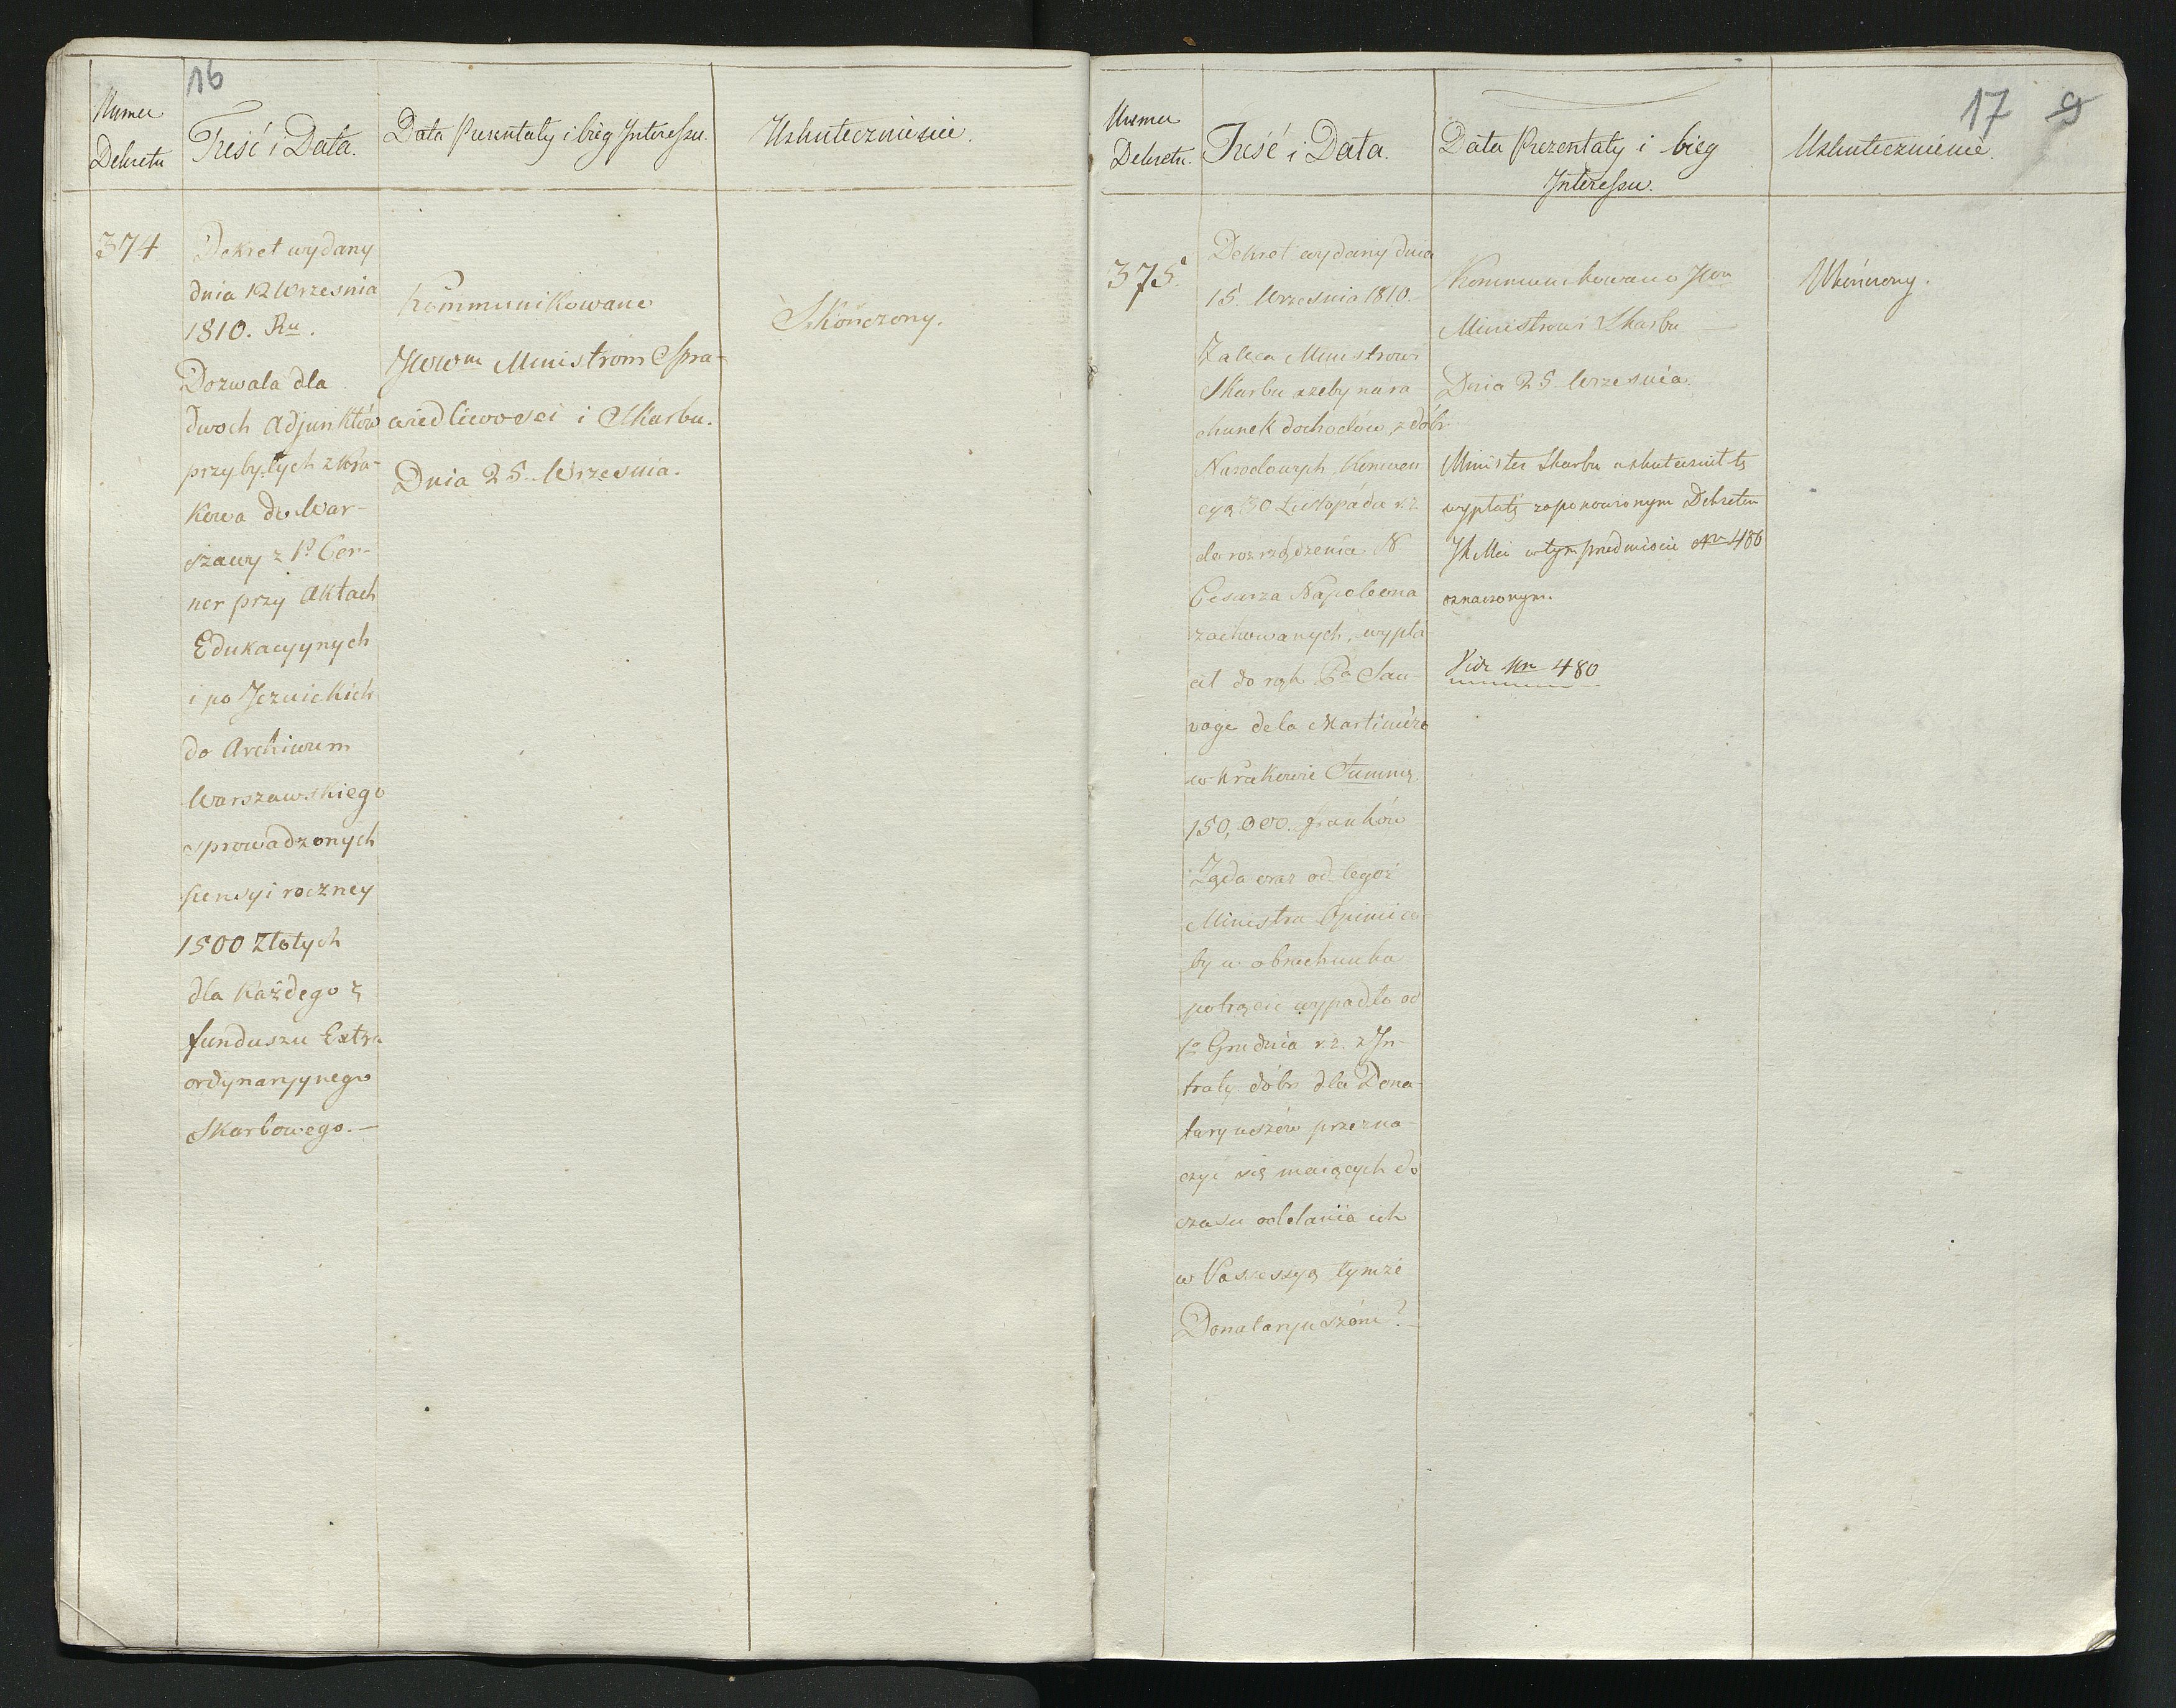 16
Numer
Dekretu
Treść i Data.
Data Prezentaty i bieg Interessu.
Uskutecznienie.
374
Dekret wydany
dnia 12 Wrzesnia
1810. Ru.
Dozwala dla
dwoch Adjunktów
przybyłych z Kra-
kowa do War-
szawy z Po Cer-
ner przy Aktach
Edukacyynych
i po Jezuickich
do Archiwum
Warszawskiego
sprowadzonych
pensyi roczney
1500 Złotych
dla każdego z
funduszu Extra
ordynaryynego
Skarbowego.—
Kommunikowane
JWWm Ministrom Spra-
wiedliwosci i Skarbu.
Dnia 25. Wrzesnia.
Skończony.
17 9
Numer
Dekretu.
Treść i Data.
Data Prezentaty i bieg
Interessu.
Uskutecznienie.
375.
Dekret wydany dnia
15. Wrzesnia 1810.
Zaleca Ministrowi
Skarbu ażeby na ra
chunek dochodów, z dóbr
Narodowych Konwen
cyą 30 Listopada r. z.
do rozrządzenia N
Cesarza Napoleona
zachowanych, wypła
cił do rąk Pa Sau-
vage de la Martiniére
w Krakowie Summę
150,000. franków
Żąda oraz od tegoż
Ministra Opinii co
by w obrachunku
potrącić wypadło od
1o Grudnia r. z. z In-
traty dóbr dla Dona-
taryuszów przezna-
czyć się maiących do
czasu oddania ich
w Possessyą tymże
Donataryuszóm?—
Kommunikowano JWu
Ministrowi Skarbu —
Dnia 25 Wrzesnia.
Minister Skarbu uskutecznił tę
wypłatę za ponowionym Dekretem
JKMci w tym przedmiocie Nr 486
oznaczonym.
Vide Nr 480
Ukończony.